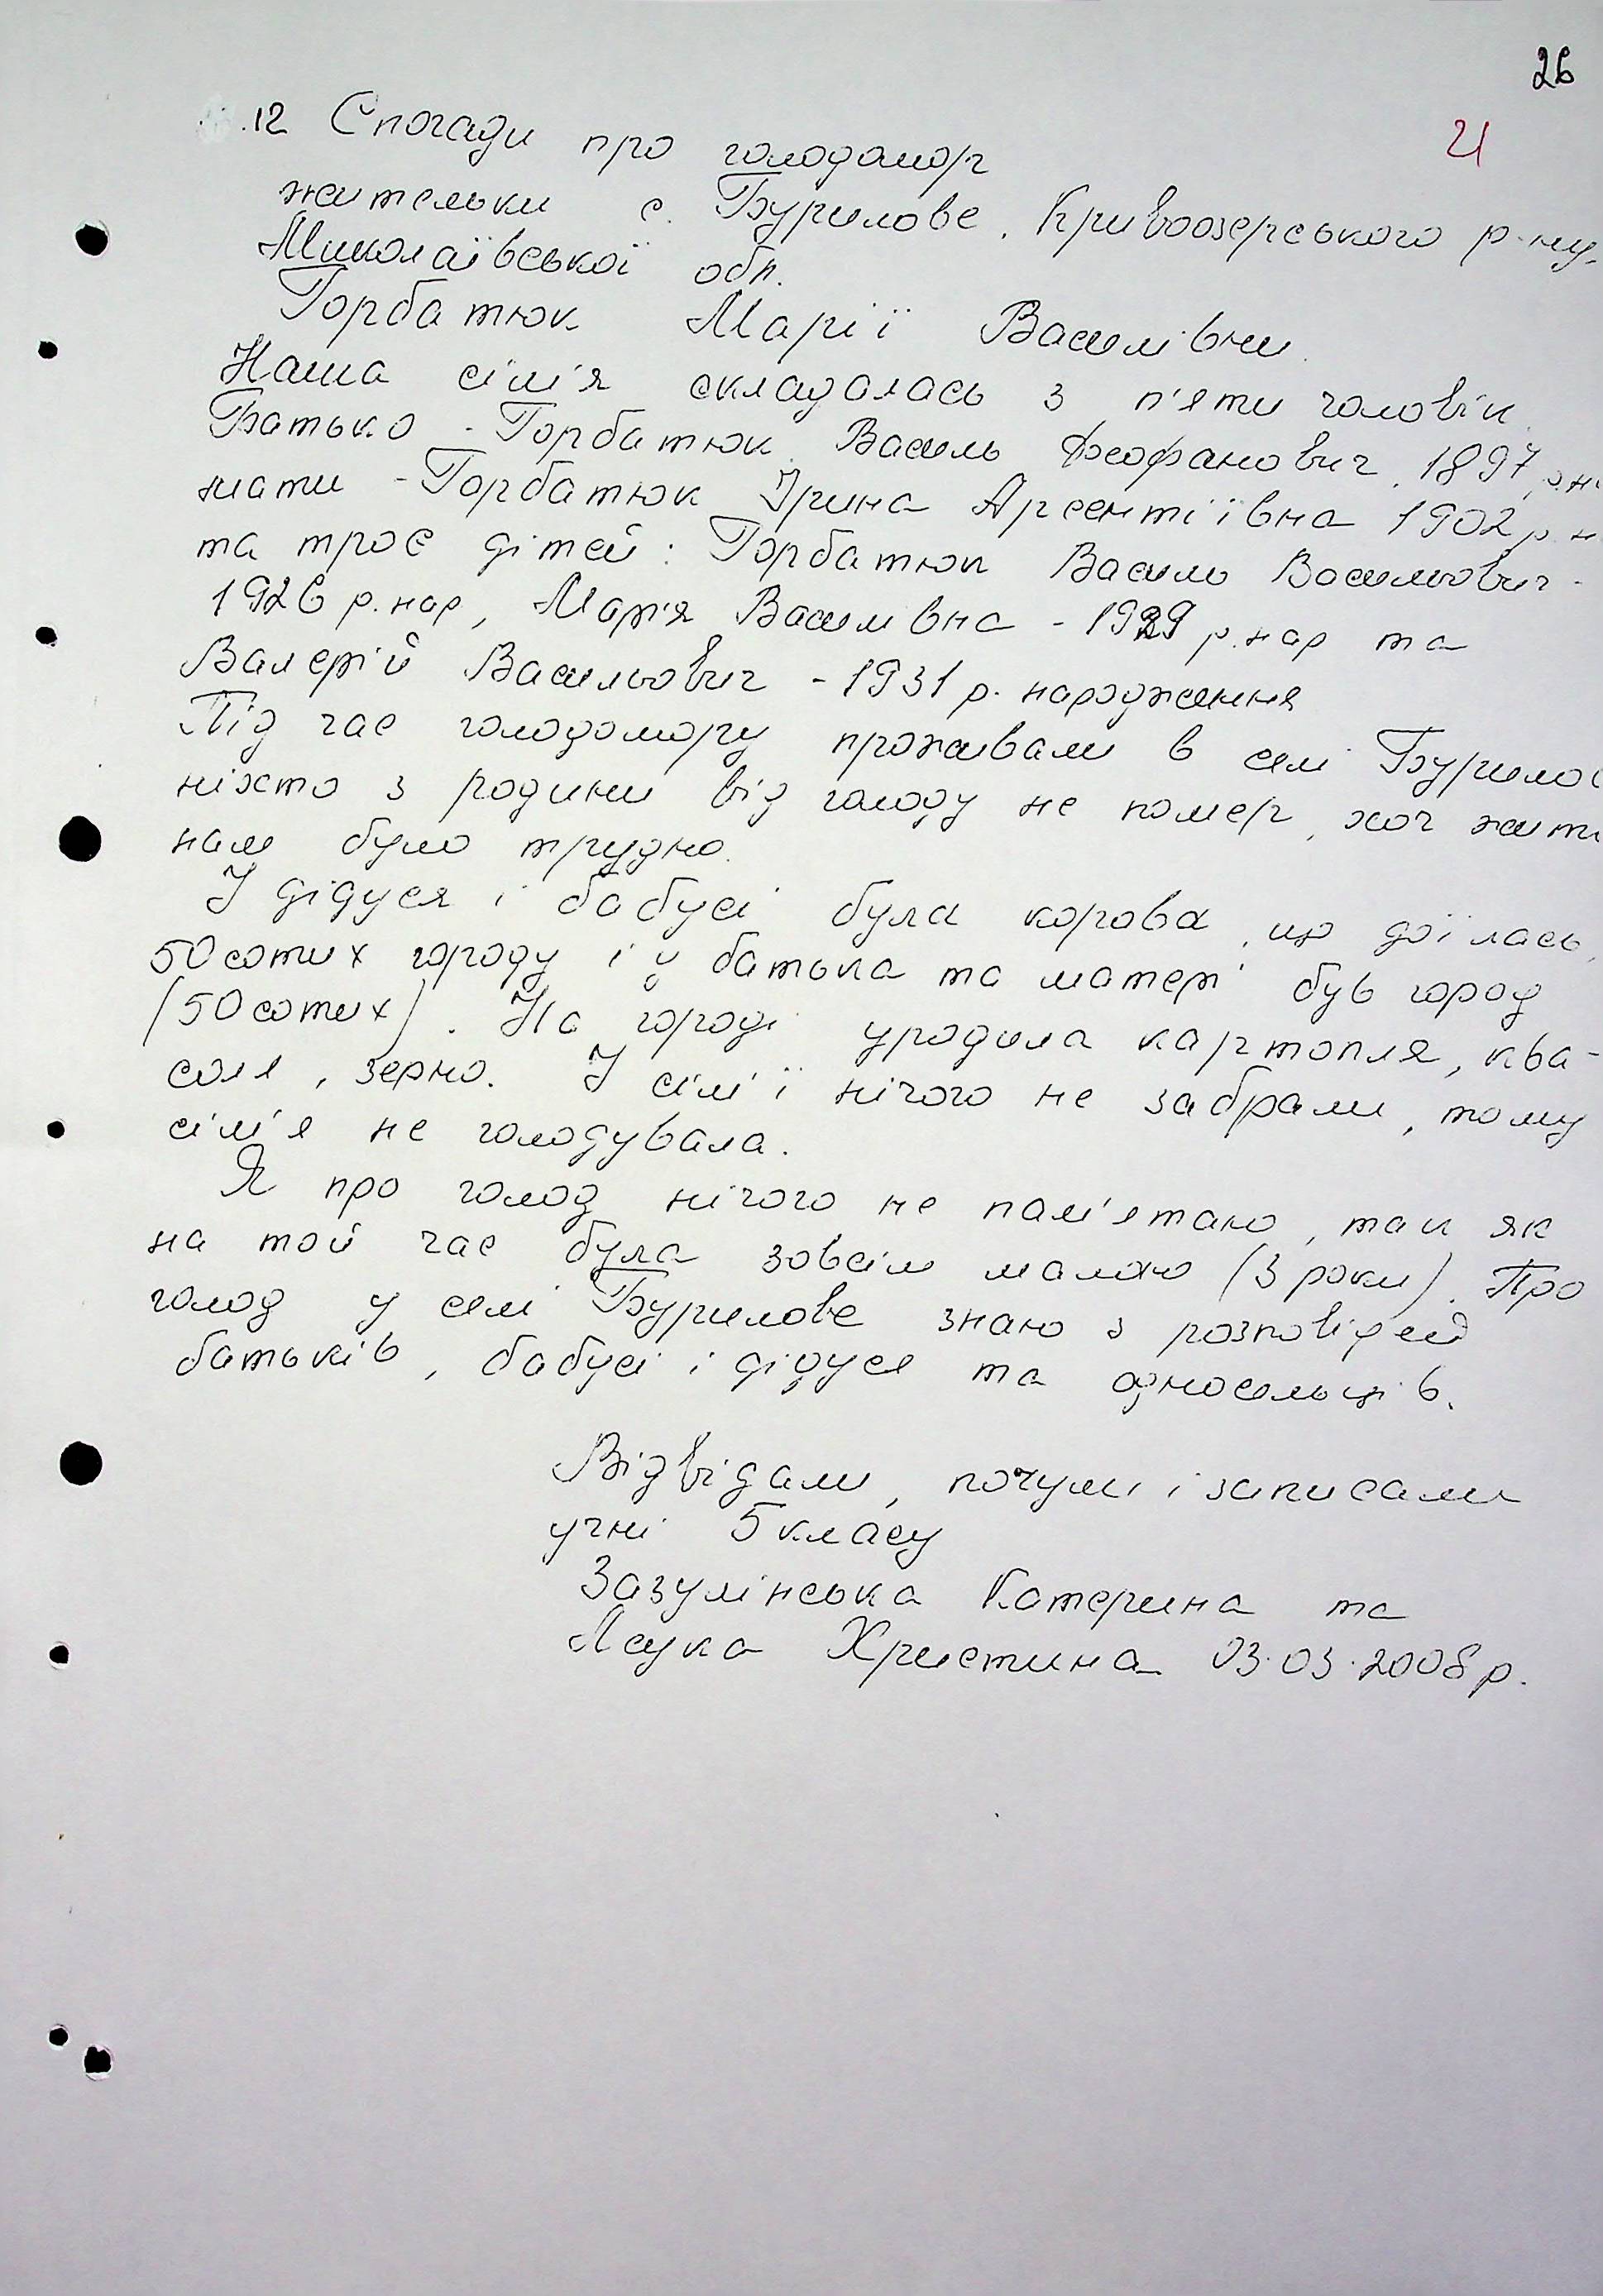 26
21
12 Спогади про голодомор
жительки с. Бурилове, Кривоозерського р-ну,
Миколаївської обл.
Горбатюк Марії Василівни.
Наша сім'я складалась з п'яти чоловік.
Батько - Горбатюк Василь Феофанович, 1897 р.н.
мати - Горбатюк Ірина Арсентіївна 1902 р.н
та троє дітей: Горбатюк Василь Васильович -
1926 р.нар, Марія Василівна - 1929 р.нар та
Валерій Васильович - 1931 р. народження
Під час голодомору проживали в селі Бурилов
ніхто з родини від голоду не помер, хоч жити
нам було трудно.
У дідуся і бабусі була корова, що доїлась,
50 сотих городу і у батька та матері був город
(50 сотих). На городі уродила картопля, ква-
соля, зерно. У сім'ї нічого не забрали, тому
сім'я не голодувала.
Я про голод нічого не пам'ятаю, так як
на той час була зовсім малою (3 роки). Про
голод у селі Бурилове знаю з розповідей
батьків, бабусі і дідуся та односельців.
Відвідали, почули і записали
учні 5 класу
Зазулінська Катерина та
Христина 03.03.2008р.